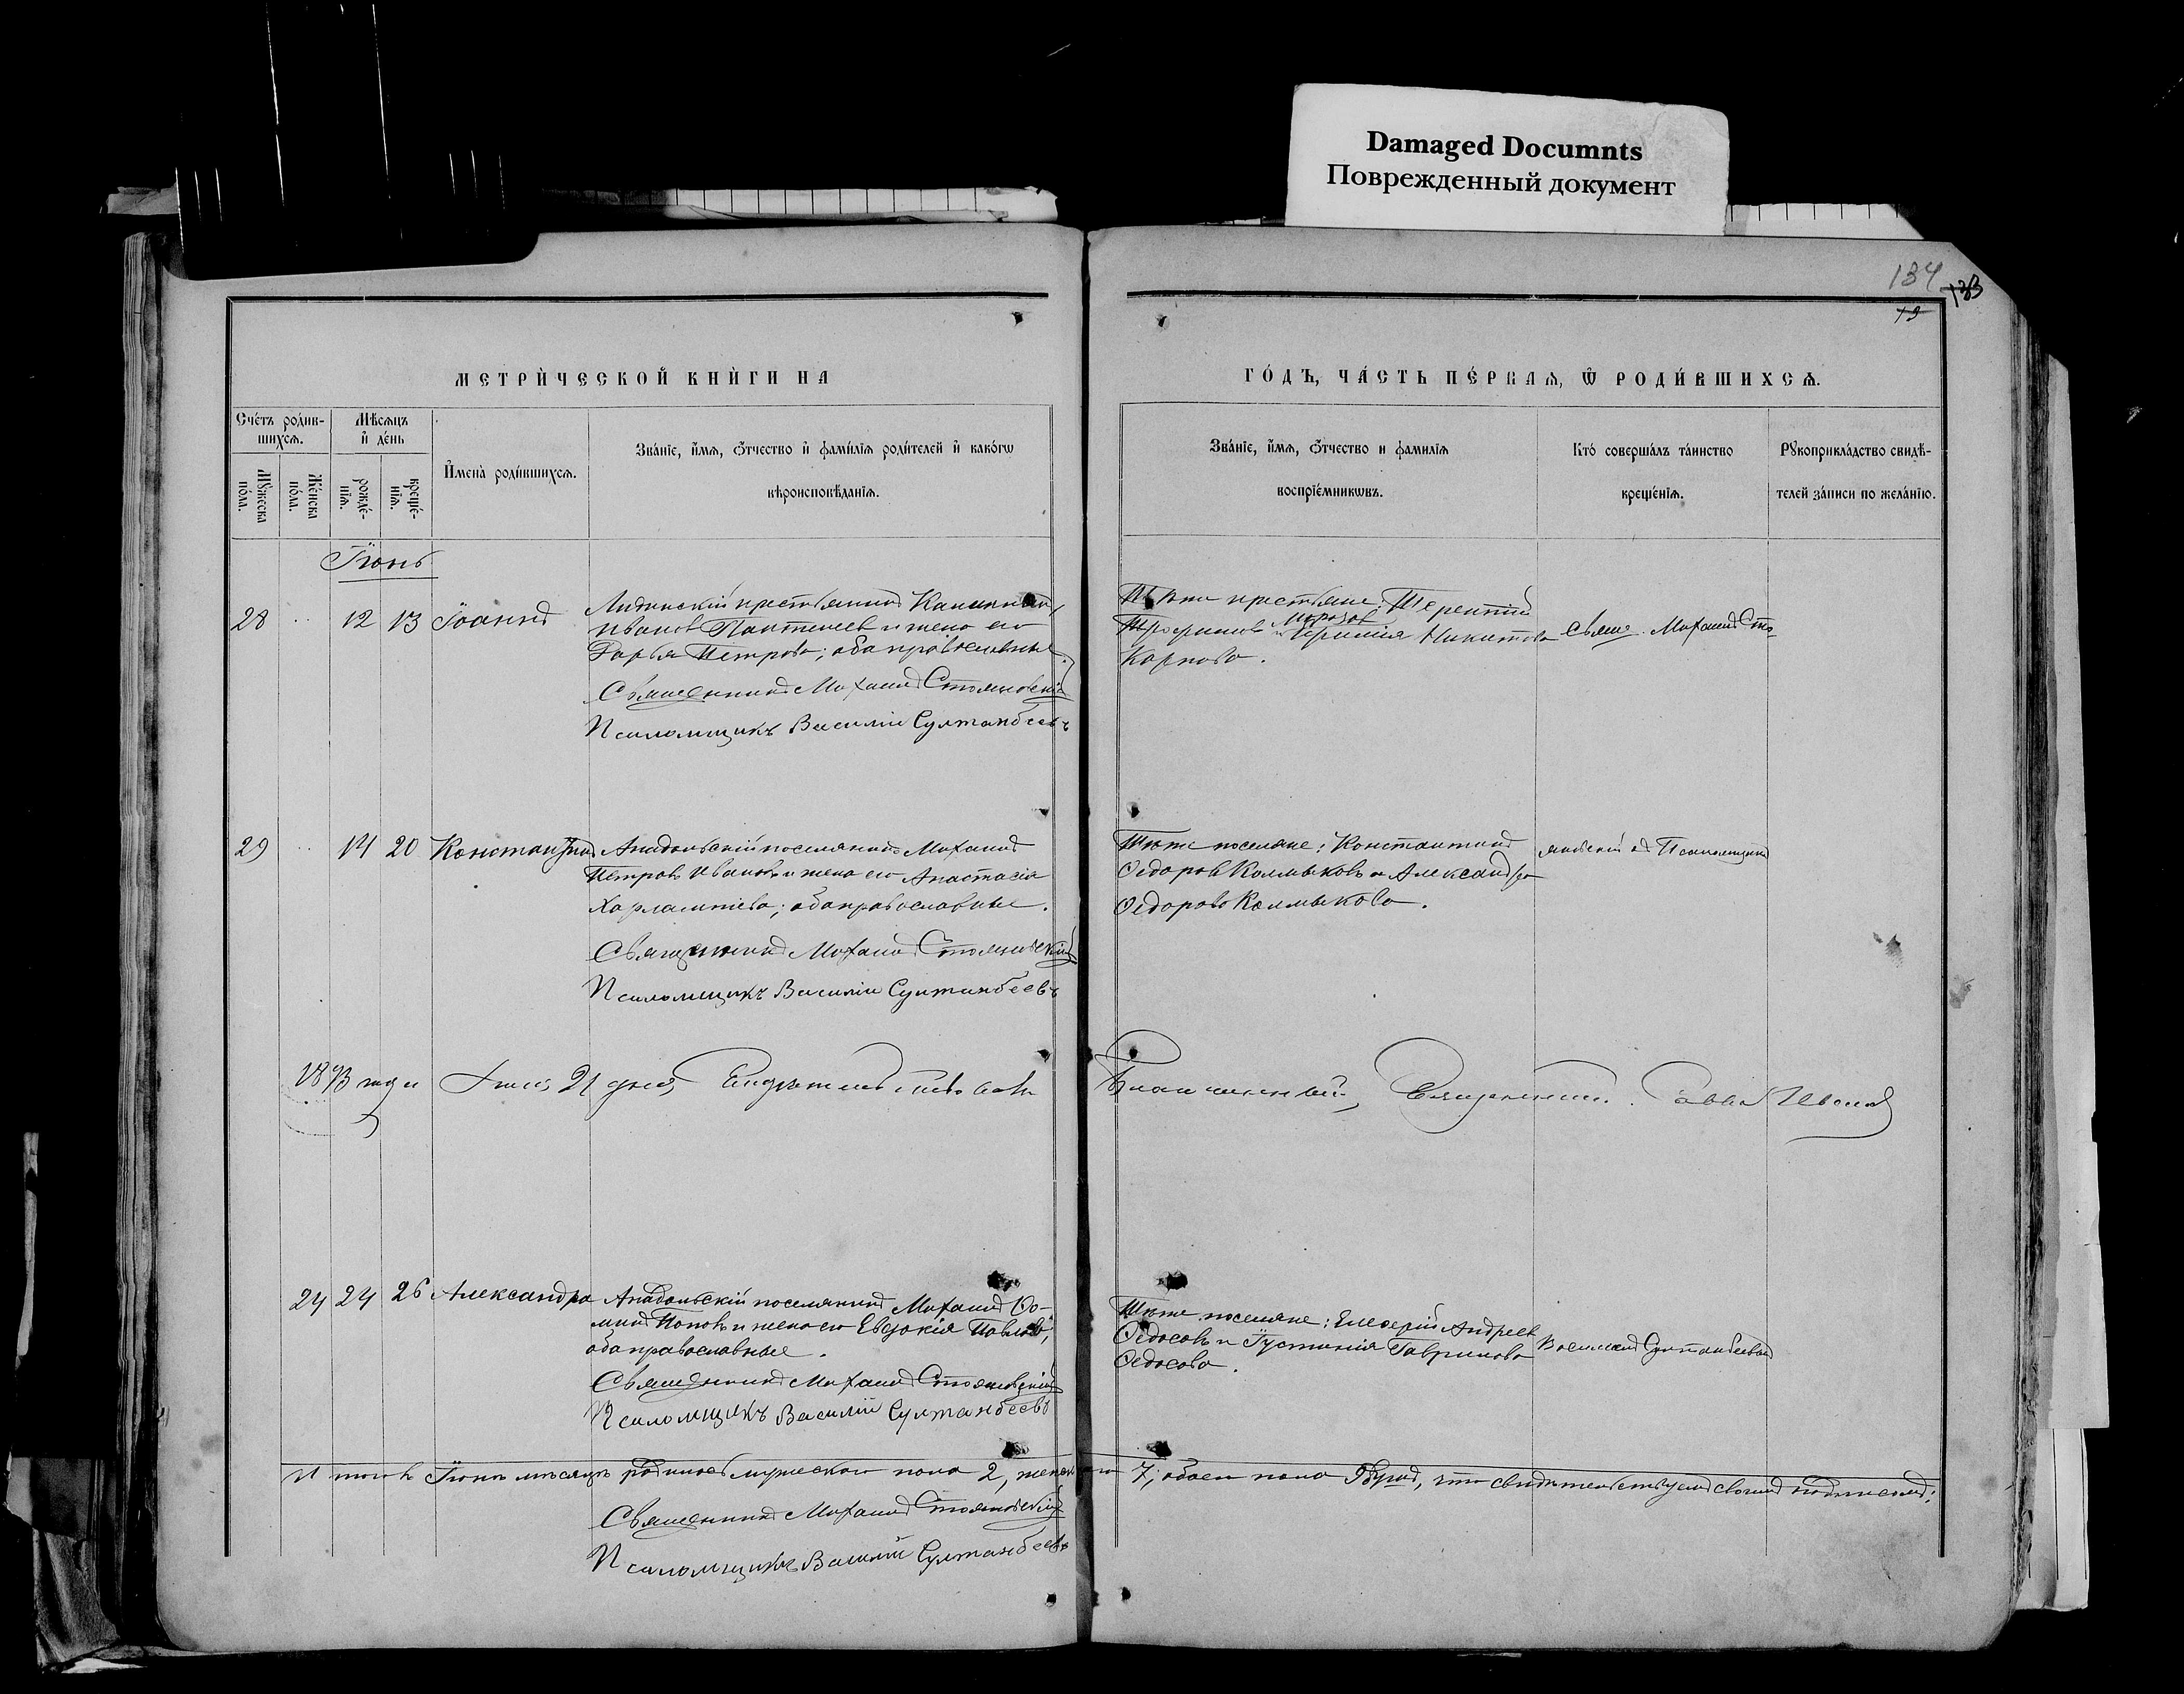 Damaged Documnts
Поврежденный документ
134
133
19
МЕТРИ́ЧЕСКОЙ КНИ́ГИ НА
ГО́ДЪ, ЧА́СТЬ ПЕ́РВАЯ, Ѿ РОДИ́ВШИХСЯ.
Сче́тъ роди́в-
шихся.
Мѣсяцъ
и де́нь
Мꙋжеска
по́ла.
Же́нска
по́ла.
рожде́-
нїя.
креще́-
нїя.
И҆мена̀ роди́вшихся.
Зва́нїе, и҆́мя, ѻ҆́тчество и҆ фами́лїя роди́телей и҆ како́гѡ
вѣроисповѣ́данїя.
Зва́нїе, и҆́мя, ѻ҆́тчество и фамилїя
воспрїе́мникѡвъ.
Кто́ соверша́лъ та́инство
креще́нїя.
Рꙋкоприкла́дство свидѣ́-
телей за́писи по жела́нїю.
Іюнь
28 12 13 Іоаннъ
Иванов Пантелеев и жена его
Дарья Петрова; оба православные.
Священникъ Михаилъ Стояновскій
Псаломщикъ Василій Султанбеевъ
Тѣже крестьяне: Терентій
Трофимовъ Морозов и Ирина Никитова
Карпова.
Свящ. Михаилъ Сто-
29 14 20 Константинъ
Анадольскій поселянинъ Михаилъ
Петровъ Ивановъ и жена его Анастасія
Харлампіева; оба православные.
Священникъ Михаилъ Стояновскій
Псаломщикъ Василій Султанбеевъ
Тѣже поселяне: Константинъ
Ѳедоровъ Колмыковъ и Александра
Ѳедорова Колмыкова.
яновскій съ Псаломщикомъ
1893 года Іюня 21 дня, Свидетельствовалъ
Благочинный, Священникъ Савва
24 24 26 Александра
Анадольскій поселянинъ Михаилъ Ѳо-
минъ Поповъ и жена его Евдокія Павлова,
оба православные.
Священникъ Михаилъ Стояновскій
Псаломщикъ Василій Султанбеевъ
Тѣже поселяне: Елевферій Андреев
Ѳедосовъ и Іустинія Гаврилова
Ѳедосова.
Василіемъ Султанбеевымъ
Итого въ Іюнѣ мѣсяцѣ родилось мужескаго пола 2, женскаго 7; обоего пола 9 душъ, что свидѣтельствуемъ своимъ подписомъ:
Священникъ Михаилъ Стояновскій
Псаломщикъ Василій Султанбеевъ